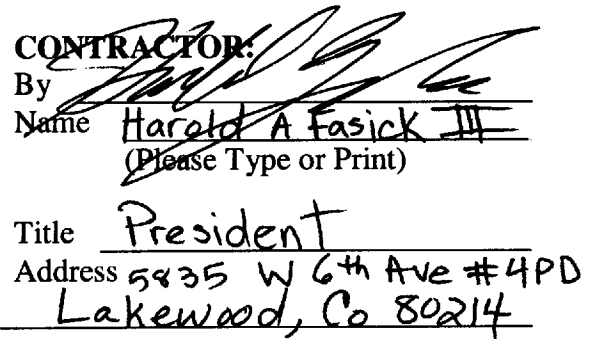 CONTRACTOR:
By
Name Harold A Fasick III
(Please Type or Print)
Title President
Address 5835 W 6th Ave #4PD
Lakewood, Co 80214